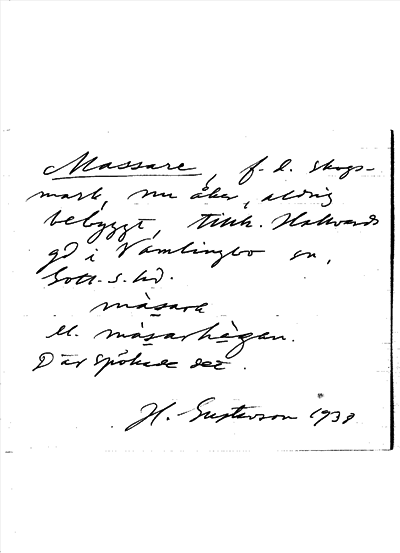 Massare, f.d. skogs-
mark, nu åker, aldrig
bebyggt, tillh. Hallvards
gd i Vamlingbo sn,
Gotl. s. hd.
màsara
el. màsarhàgan.
Där spökade det.
H. Gustavson 1938